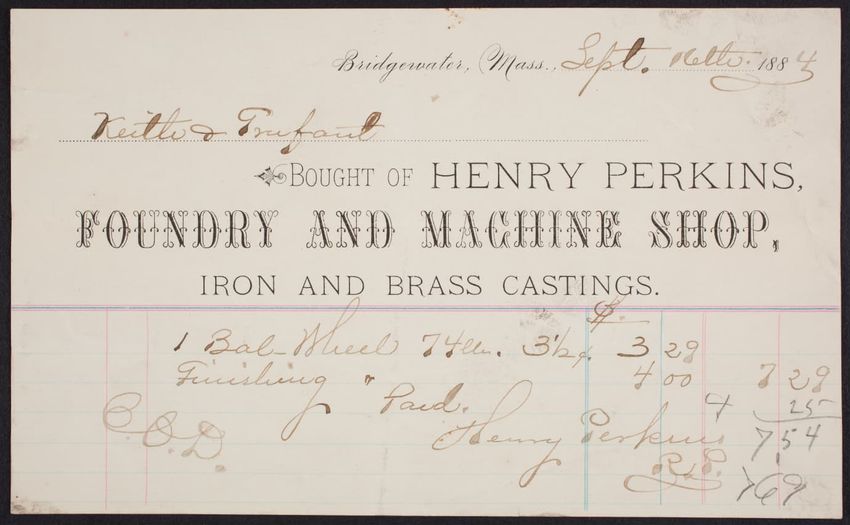 Bridgewater, Mass., Sept. 1884
Keith & Trufant
Bought of HENRY PERKINS,
FOUNDRY AND MACHINE SHOP,
IRON AND BRASS CASTINGS.
$.
1 Bal-Wheel 74 lbs. 3 1/2 ¢. 3 29
Finishing " 4 00 7 29
Paid. 4 25
C.O.D. Henry Perkins 7.54
769